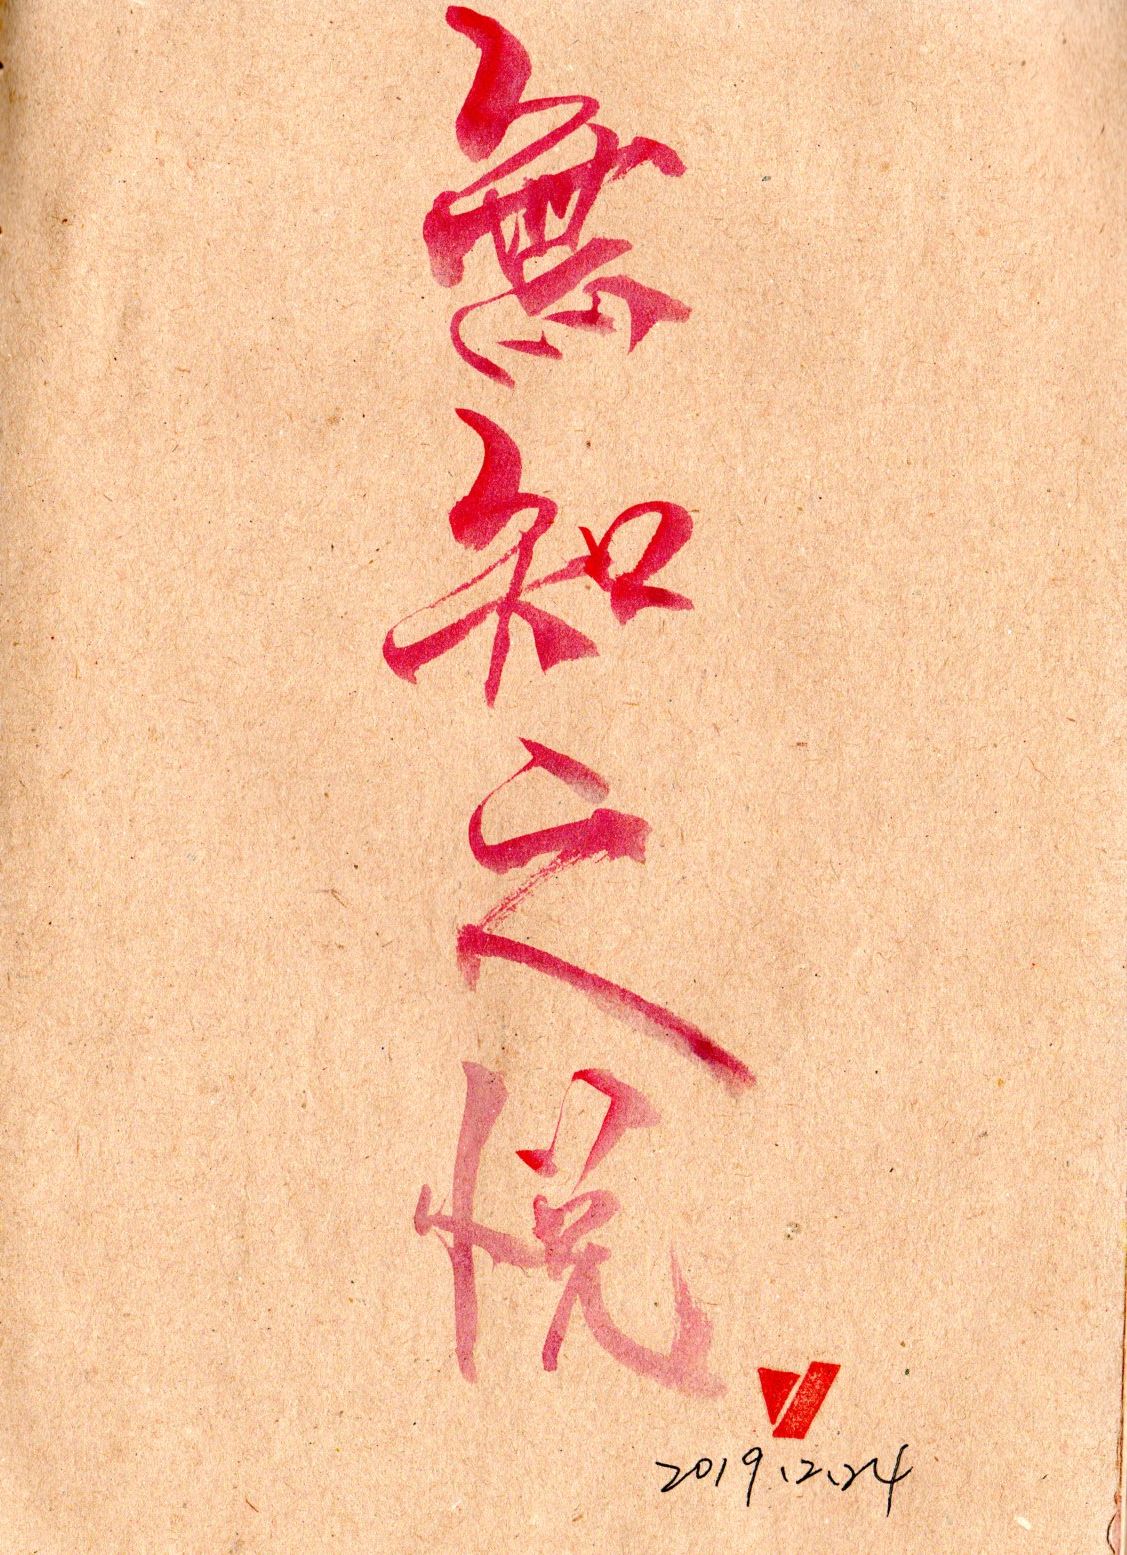 無知之悦
2019.12.24